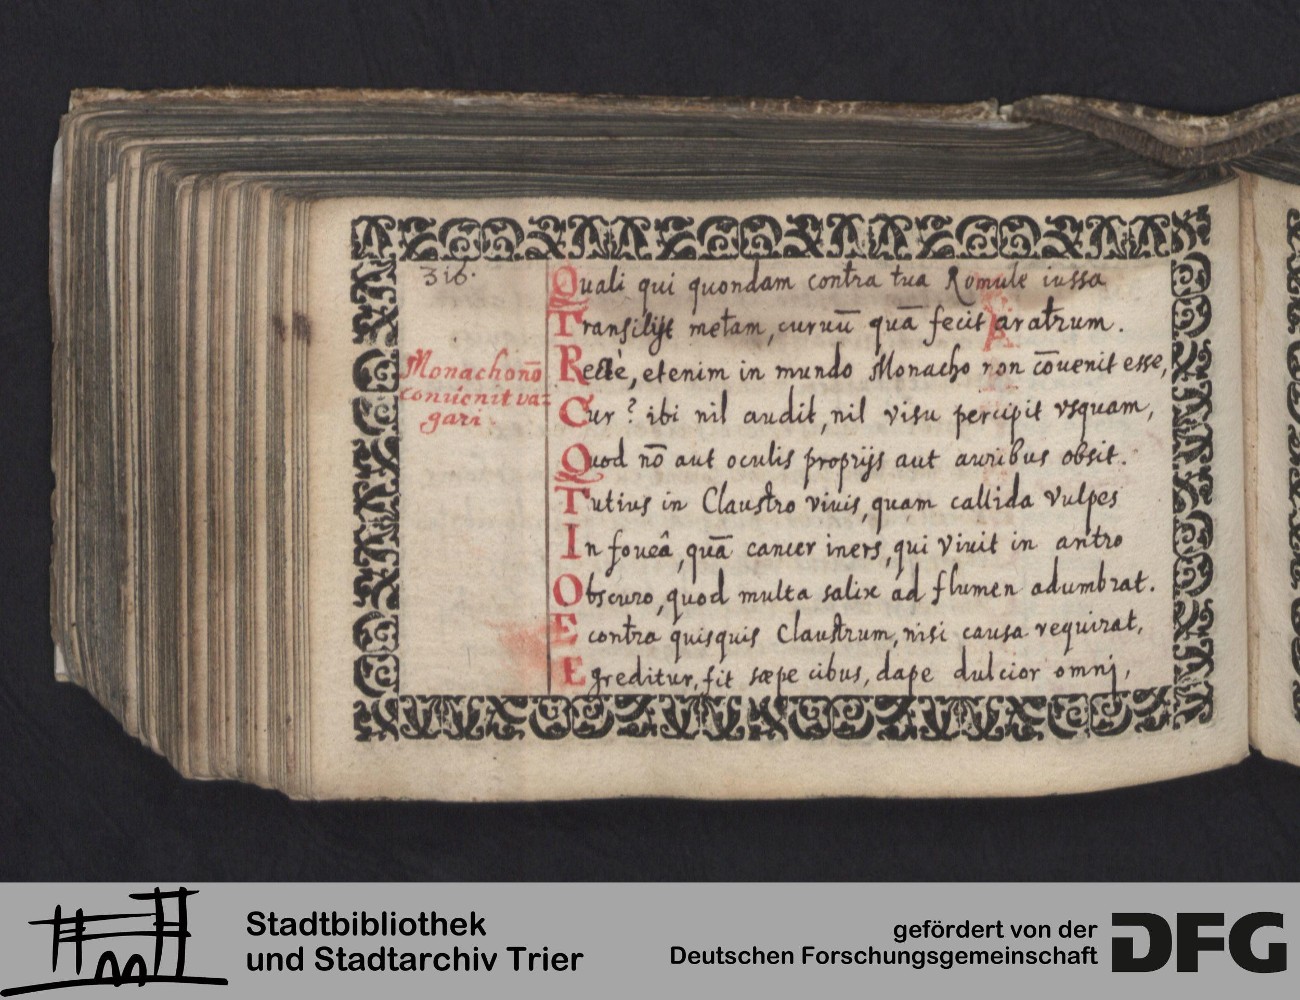 316.
Quali qui quondam contra tua Romule iussa
Transilijt metam, curuū quā fecit aratrum.
Monacho nō
conuenit va=
gari.
Rectè, etenim in mundo Monacho non cōuenit esse,
Cur? ibi nil audit, nil visu percipit vsquam,
Quod nō aut oculis proprijs aut auribus obsit.
Tutius in Claustro viuis, quam callida vulpes
In foueâ, quā cancer iners, qui viuit in antro
Obscuro, quod multa salix ad flumen adumbrat.
E contra quisquis Claustrum, nisi causa requirat,
Egreditur, fit sæpe cibus, dape dulcior omnj,
Stadtbibliothek
und Stadtarchiv Trier
gefördert von der
Deutschen Forschungsgemeinschaft
DFG